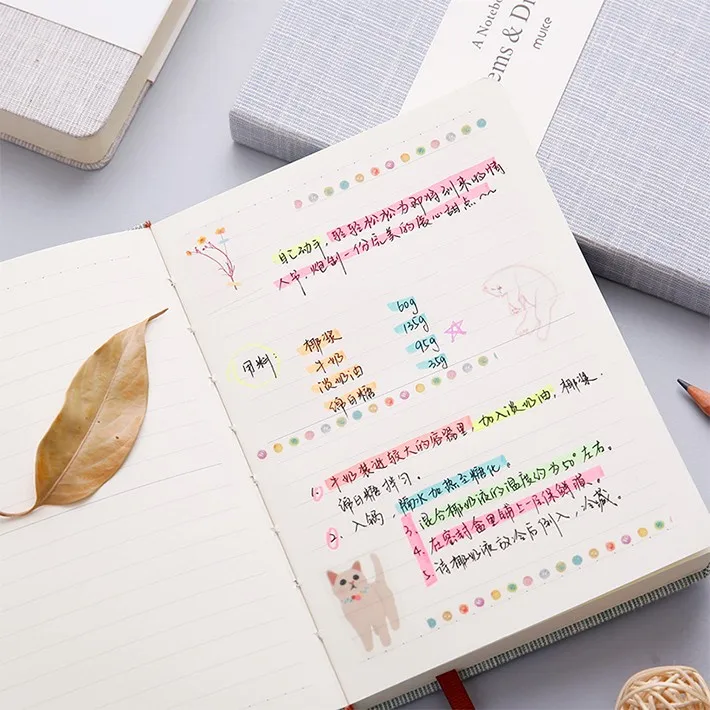 A Notebo
ems & Dr
自己动手,轻轻松松为即将到来的情
人节,炮制一份完美的爱心甜点~~
用料:
椰浆 60g
牛奶 135g
淡奶油 95g
绵白糖 35g
1. 牛奶装进较大的容器里,加入淡奶油,椰浆.
绵白糖拌匀.
2. 入锅,隔水加热至糖化。
3. 混合椰奶液的温度约为50°左右。
4. 在密封盒里铺上一层保鲜膜。
5. 待椰奶液放冷后倒入,冷藏。